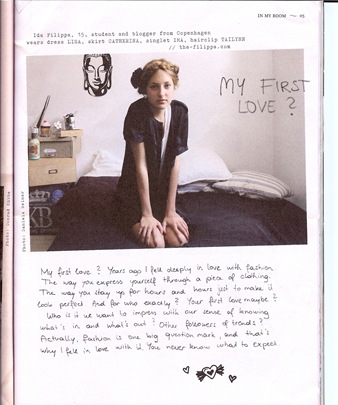 IN MY ROOM ~ 25
Ida Filippa, 15, student and blogger from Copenhagen
wears dress LINA, skirt CATHERINA, singlet IRA, hairclip TAILYEH
// the-filippa.com
MY FIRST
LOVE?
Photo: Daniela
My first love? Years ago I fell deeply in love with fashion
The way you express yourself through a piece of clothing.
The way you stay up for hours and hours just to make it
look perfect. And for who exactly? Your first love maybe?
Who is it we want to impress with our sense of knowing
what's in and what's out? Other followers of trends?
Actually, fashion is one big question mark, and that's
why I fell in love with it. You never know what to expect